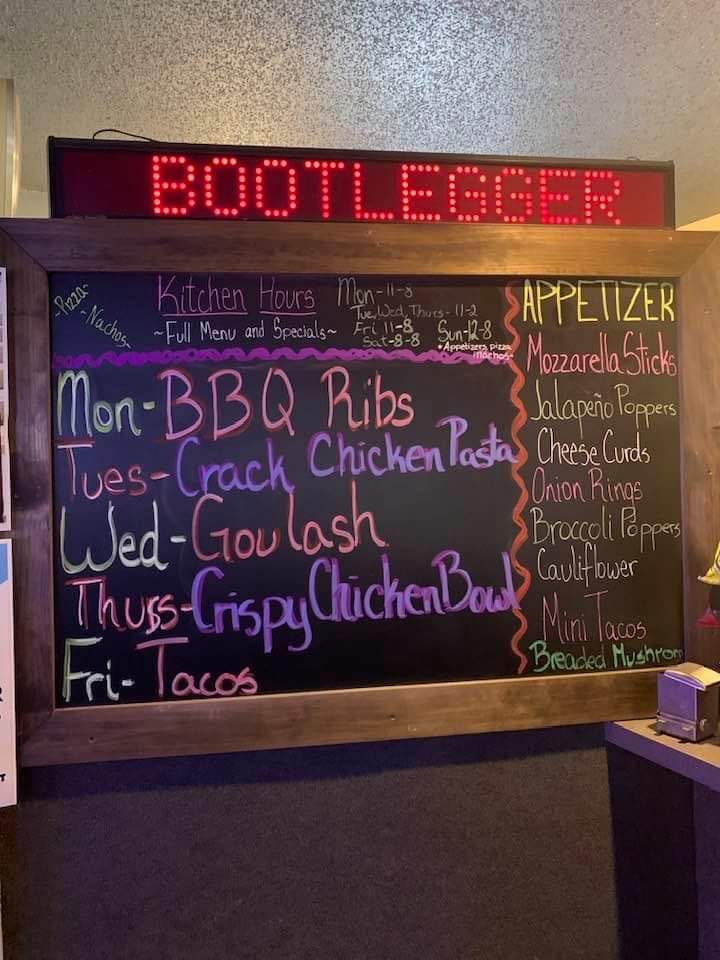 BOOTLEGGER
-Pizza-
-Nachos-
Kitchen Hours
~Full Menu and Specials~
Mon-11-8
Tue, Wed, Thurs-11-2
Fri 11-8
Sat-8-8
Sun-12-8
*Appetizers, pizza, nachos*
Mon-BBQ Ribs
Tues-Crack Chicken Pasta
Wed-Goulash
Thurs-Crispy Chicken Bowl
Fri-Tacos
APPETIZER
Mozzarella Sticks
Jalapeño Poppers
Cheese Curds
Onion Rings
Broccoli Poppers
Cauliflower
Mini Tacos
Breaded Mushrom